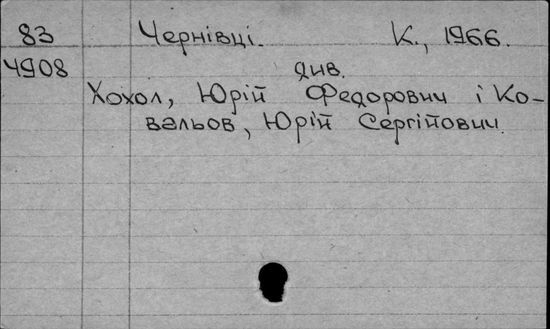 83 Чернівці. К., 1966.
4908 див.
Хохол, Юрій Федорович і Ко-
вальов, Юрій Сергійович.